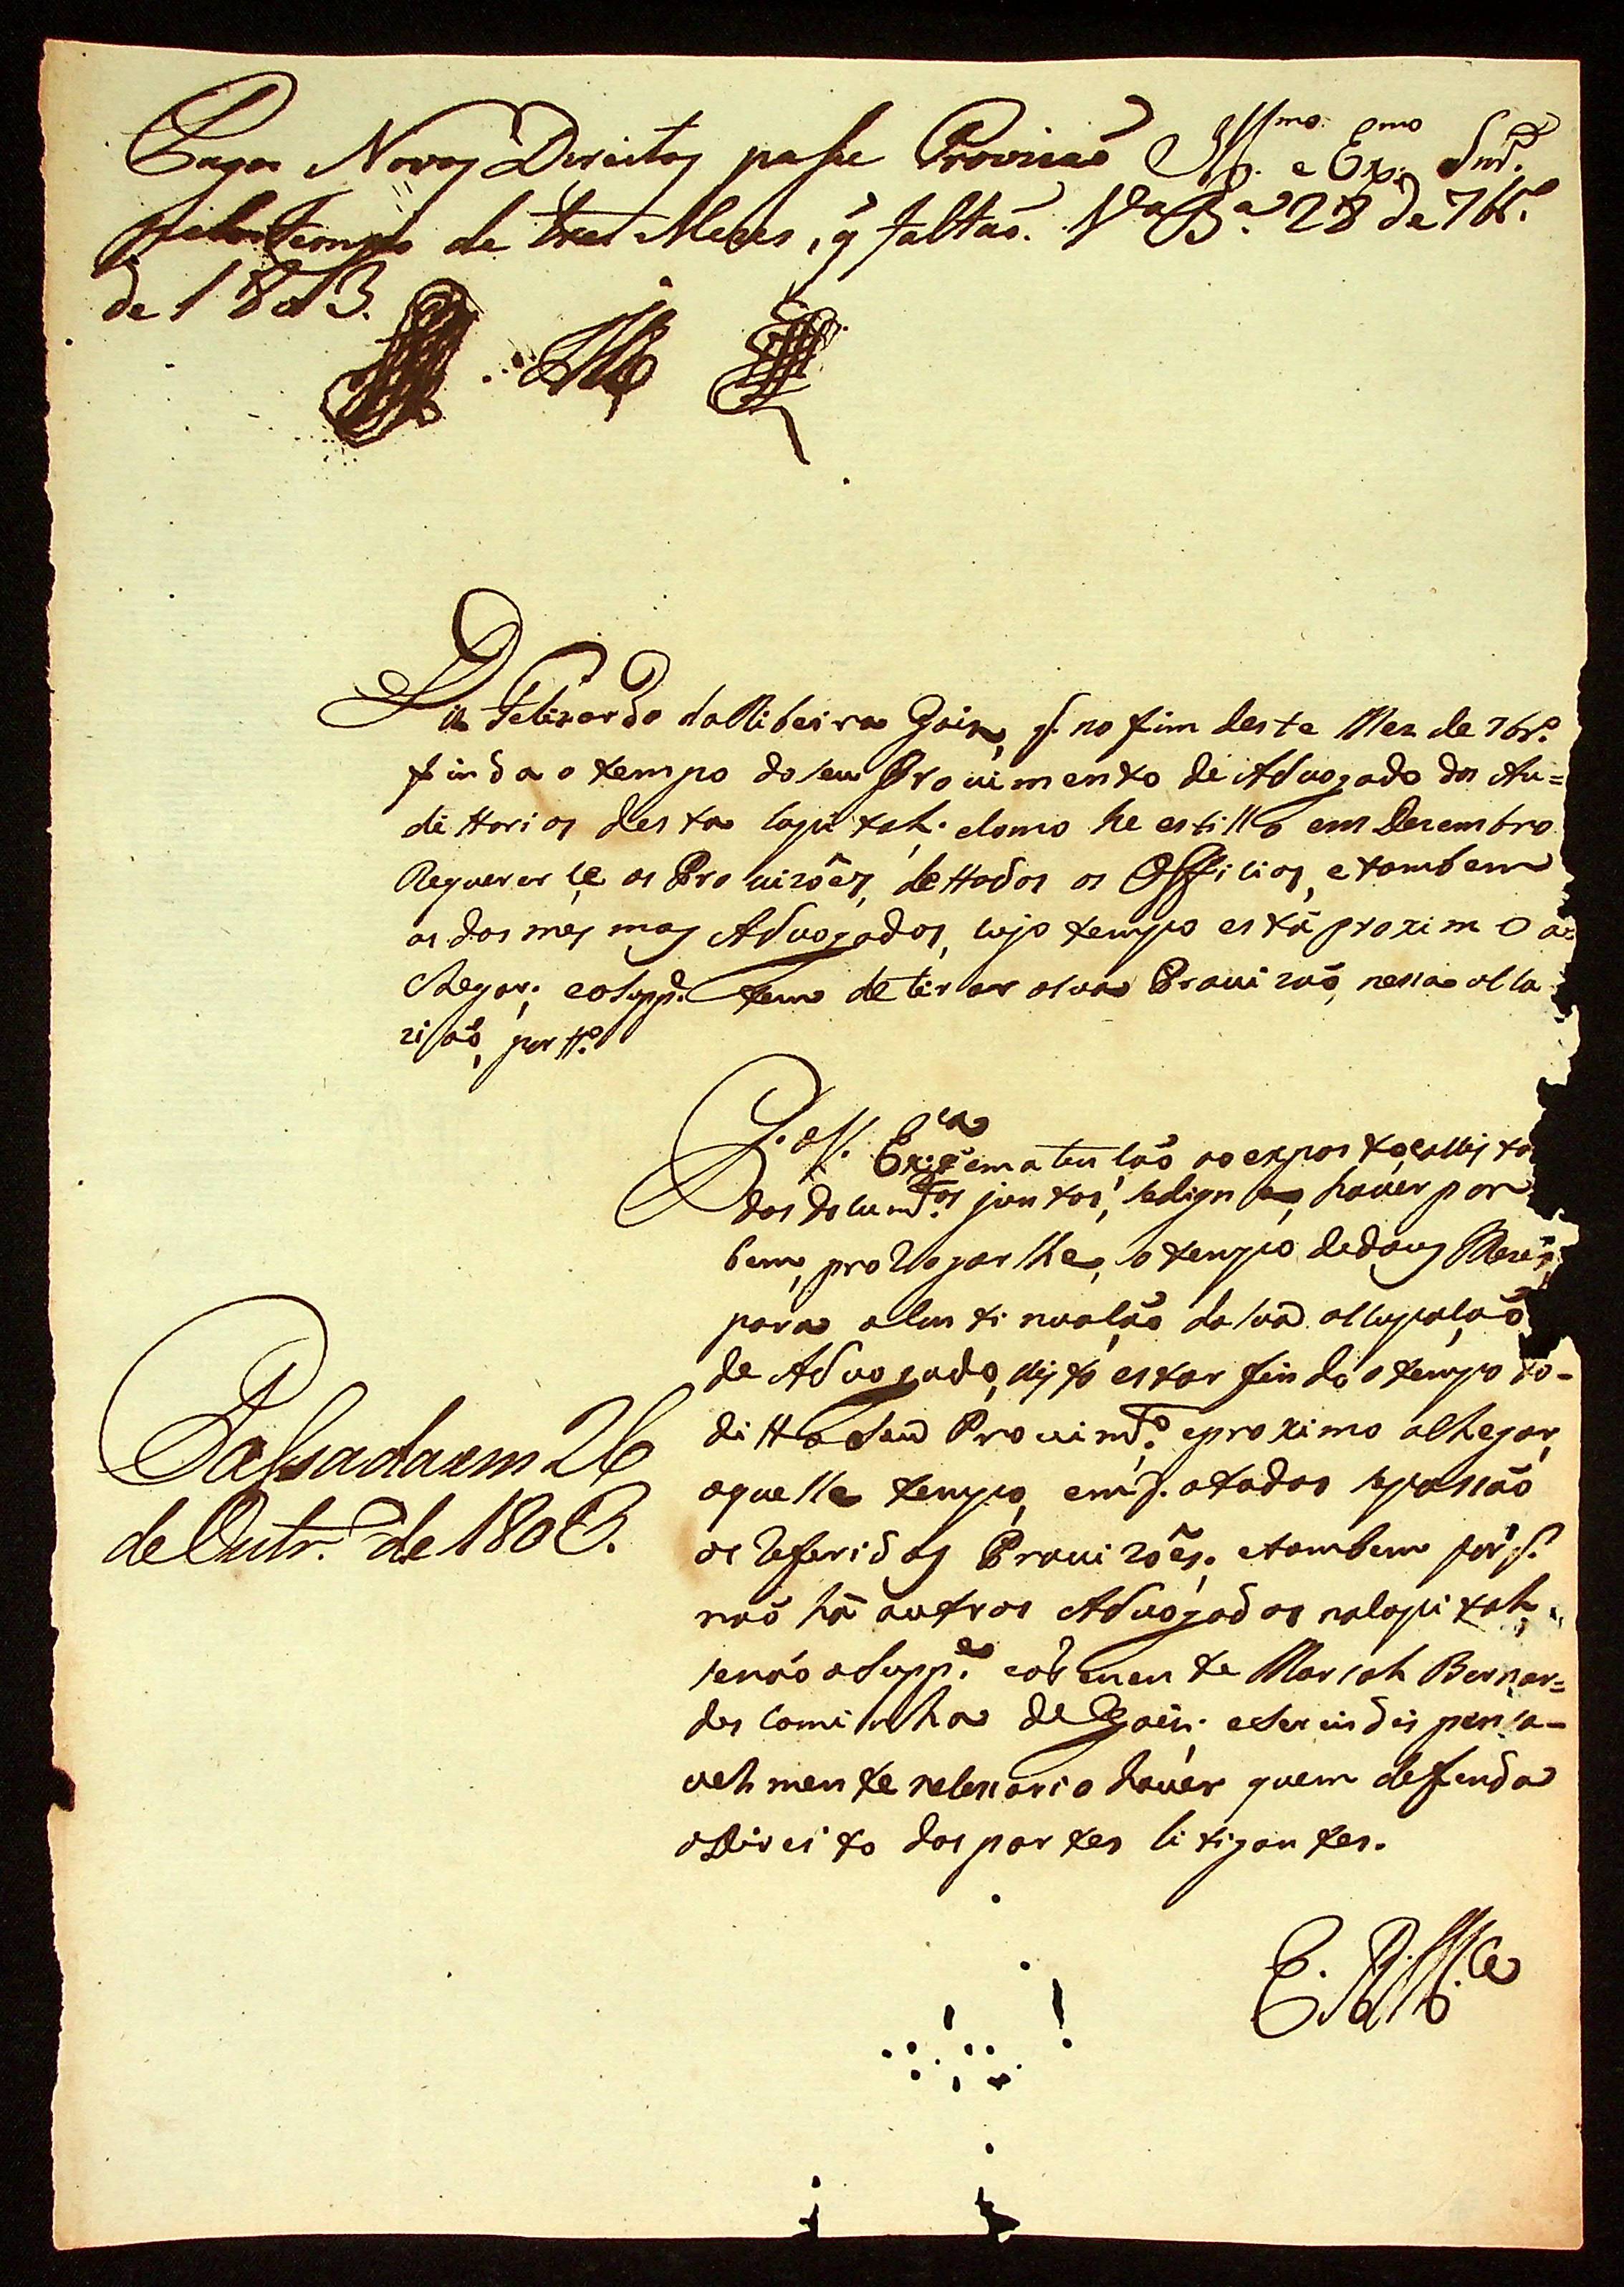 Pagos Novos Direitos passe Provizaõ Ill.mo e Ex.mo Snr.
pelo tempo de tres Mezes, q̃ faltaõ. V.a B.a 28 de 7br.o
de 1803.
Diz Felizardo da Ribeira Gois, q. no fim deste Mez de 7br.o
finda o tempo do seu Provimento de Advogado dos Au=
dittorios desta Capital; e como he estillo em Dezembro
Requerer se as Provizões, de ttodos os Officios, e tambem
as dos mesmos Advogados, cujo tempo está proximo a
chegar; e o Supp.e tem de tirar a sua Provizaõ, nessa occa
ziaõ, por tt.o
P. a V. Ex.ca q̃ em atençaõ ao exposto, e a vista
dos docum.tos juntos, se digne, haver por
bem, prologar lhe, o tempo de dous Mezes,
para a continuaçaõ da sua occupaçaõ
de Advogado, visto estar findo o tempo do
ditto seu Provim.to e proximo a chegar,
aquelle tempo, em q. a todos se passaõ
as referidas Provizões; e tambem por q.
naõ há outros Advogados na Capital,
senaõ o Supp.e e o Tenente Marçal Bernar=
des Caminha de Gois; e ser indispensa-
velmente necessario haver quem defenda
o Direito das partes litigantes.
E. R. M.ce
Passada em 26
de Outr.o de 1803.